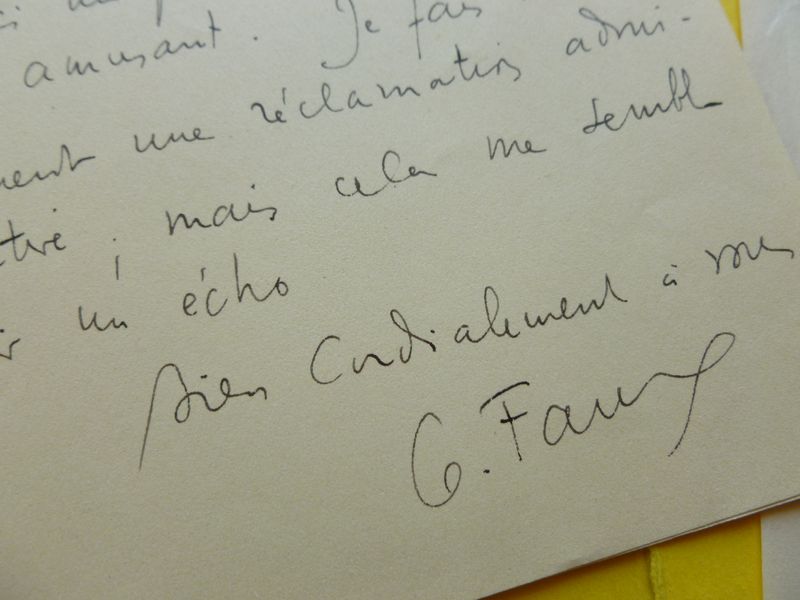 amusant. Je fais
une réclamation admi-
mais cela me semble
un écho
Bien Cordialement à vous
G. Faure